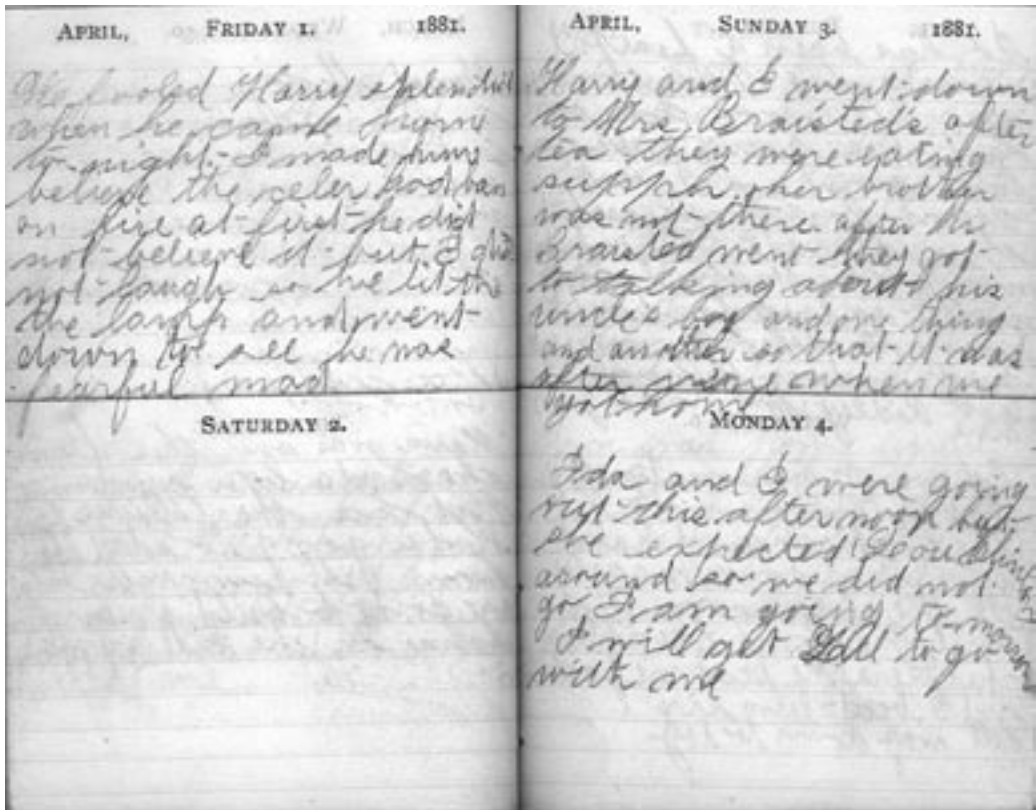 APRIL, FRIDAY 1. 1881.
fooled Harry splendid
when he came home
to-night- I made him
believe the celer
on fire at-first-he did
not-believe it-but I did
not-laugh so he lit the
the lamp and went-
down to see he was
fearful mad
SATURDAY 2.
APRIL, SUNDAY 3. 1881.
Harry and I went down
to Mrs Braisted's after
tea they were eating
supper her brother
was not-there after Mr
Braisted went they got-
to talking about his
uncle's boy and one thing
and another so that-it-was
after nine when we
got home
MONDAY 4.
Ida and I were going
out-this afternoon but-
we expected
around so we did not
go I am going To-morrow
I will get to go
with me